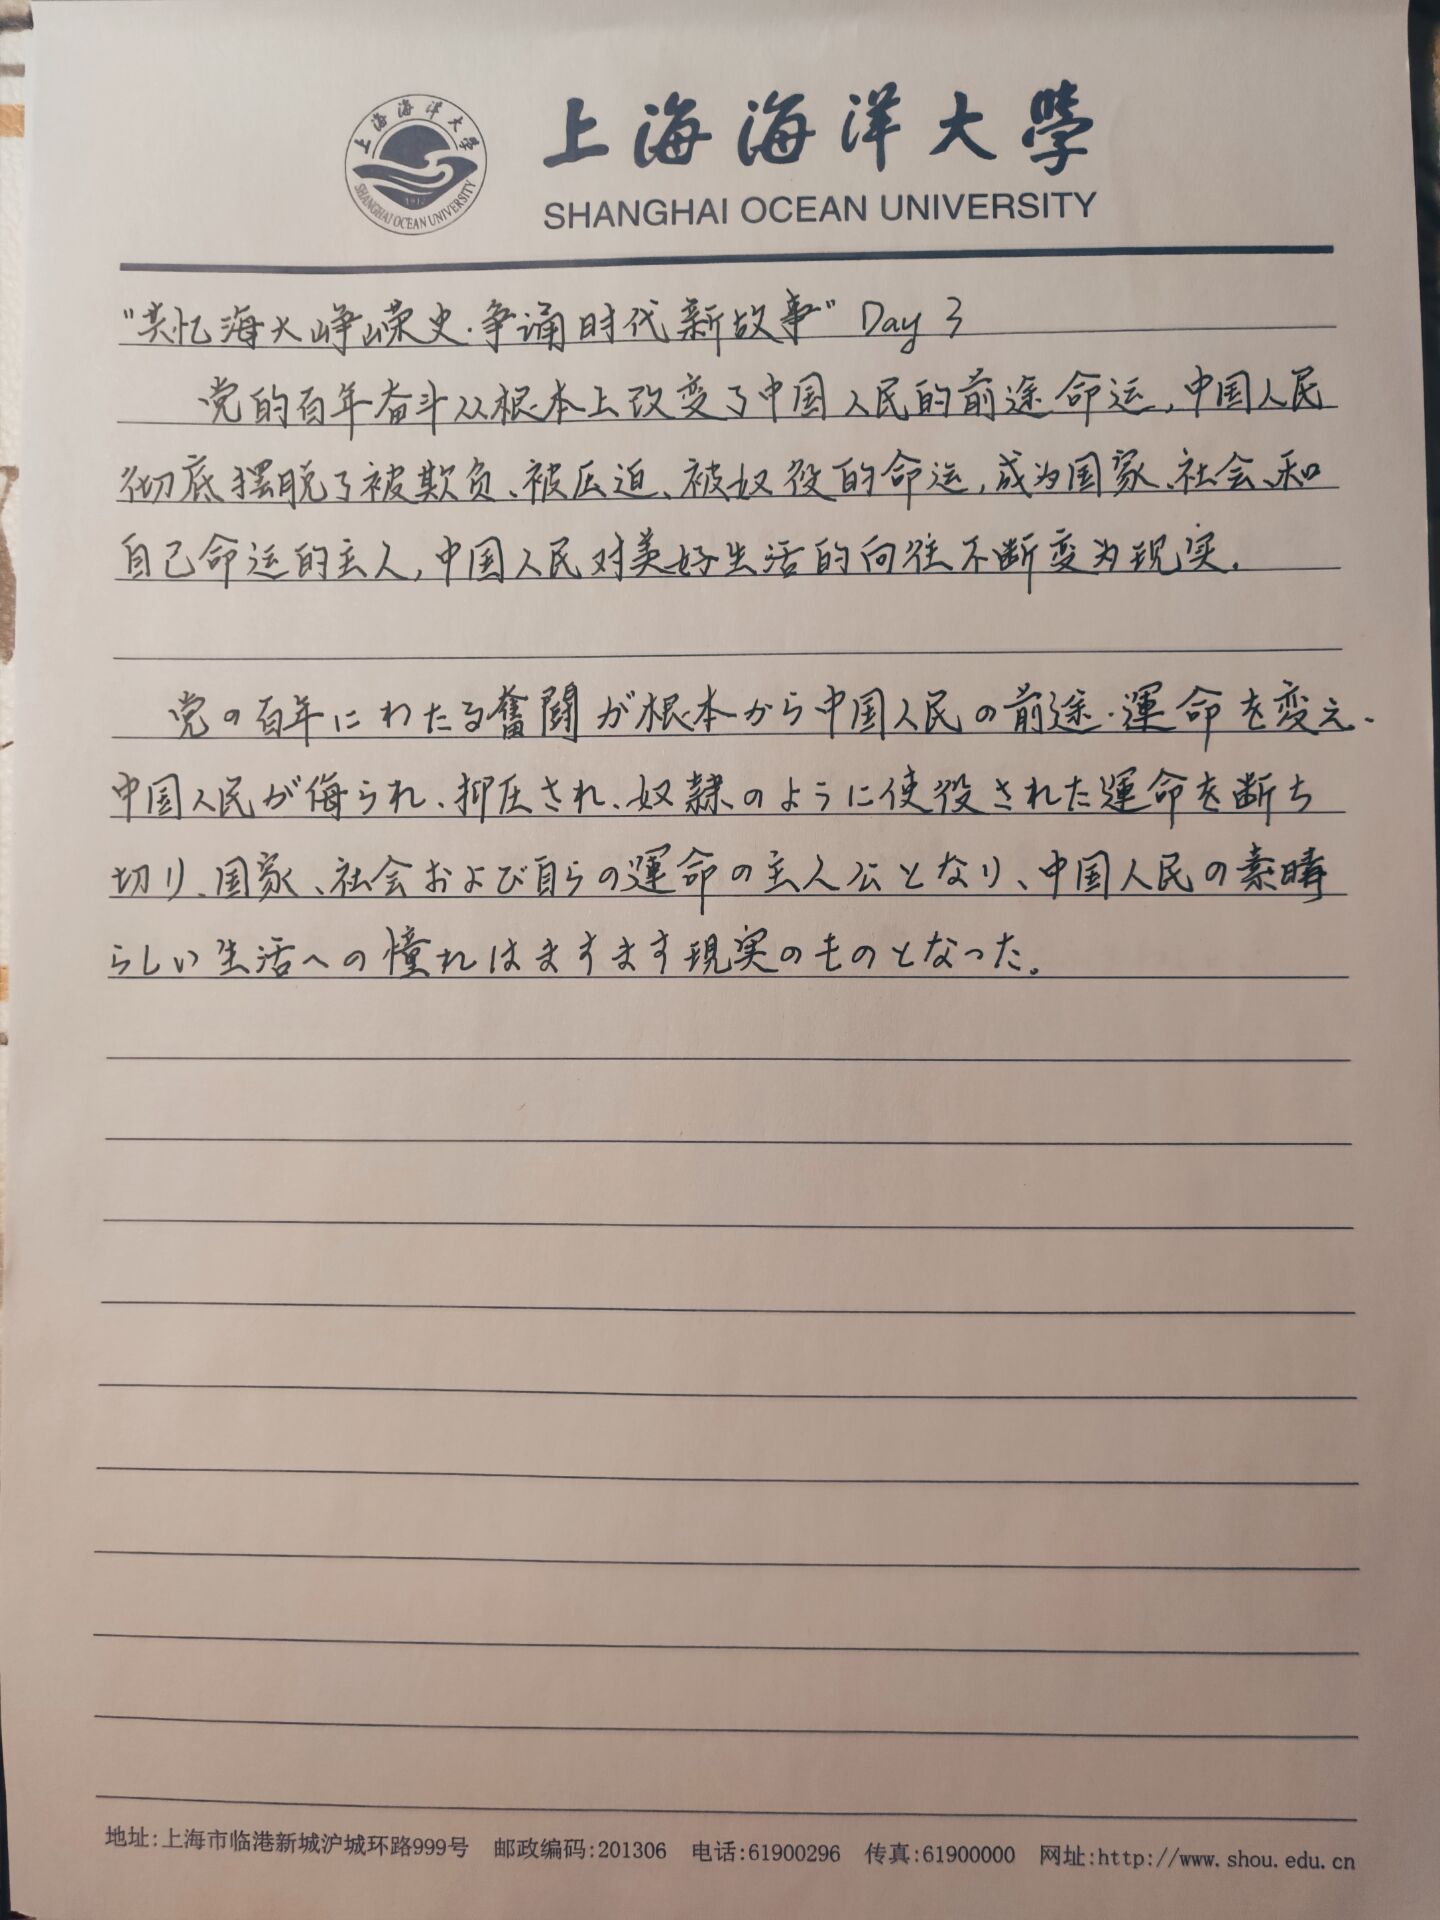 上海海洋大學
SHANGHAI OCEAN UNIVERSITY
上海海洋大學
SHANGHAI OCEAN UNIVERSITY
1912
“共忆海大峥嵘史·争诵时代新故事” Day 3
党的百年奋斗从根本上改变了中国人民的前途命运,中国人民
彻底摆脱了被欺负、被压迫、被奴役的命运,成为国家、社会、和
自己命运的主人,中国人民对美好生活的向往不断变为现实.
党の百年にわたる奮闘が根本から中国人民の前途·運命を変え、
中国人民が侮られ、抑圧され、奴隷のように使役された運命を断ち
切り、国家、社会および自らの運命の主人公となり、中国人民の素晴
らしい生活への憧れはますます現実のものとなった。
地址:上海市临港新城沪城环路999号 邮政编码:201306 电话:61900296 传真:61900000 网址:http://www.shou.edu.cn